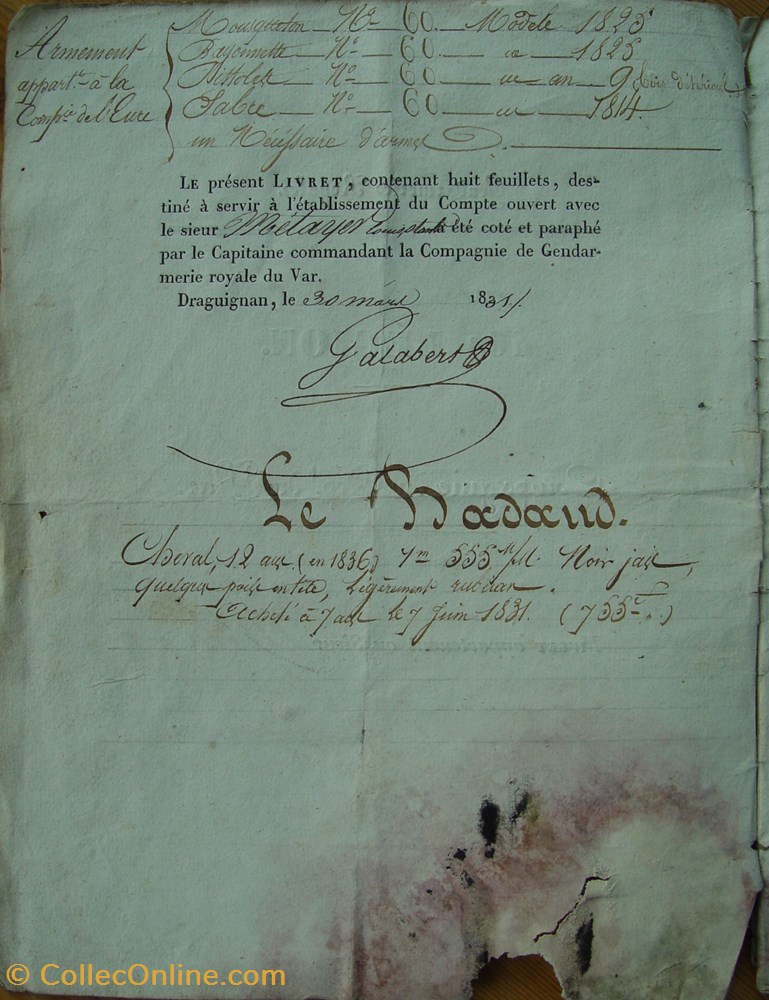 Armement
appart. à la
Comp.ie de l'Eure
Mousqueton — N.o — 60 — Modèle 1825
Bayonnette — N.o — 60 — 1825
Pistolet — N.o — 60 — an 9
Sabre — N.o — 60 — 1814.
un Nécessaire d'armes
Le présent Livret, contenant huit feuillets, des-
tiné à servir à l'établissement du Compte ouvert avec
le sieur Métayer a été coté et paraphé
par le Capitaine commandant la Compagnie de Gendar-
merie royale du Var.
Draguignan, le 30 mars 1831.
Galabert
Le Nadaud.
Cheval, 12 ans (en 1836) 1m 555 M/M. Noir jais,
quelques poils en tête, Légèrement rubican.
Acheté à 7 ans le 7 Juin 1831. (755 f.)
© CollecOnline.com